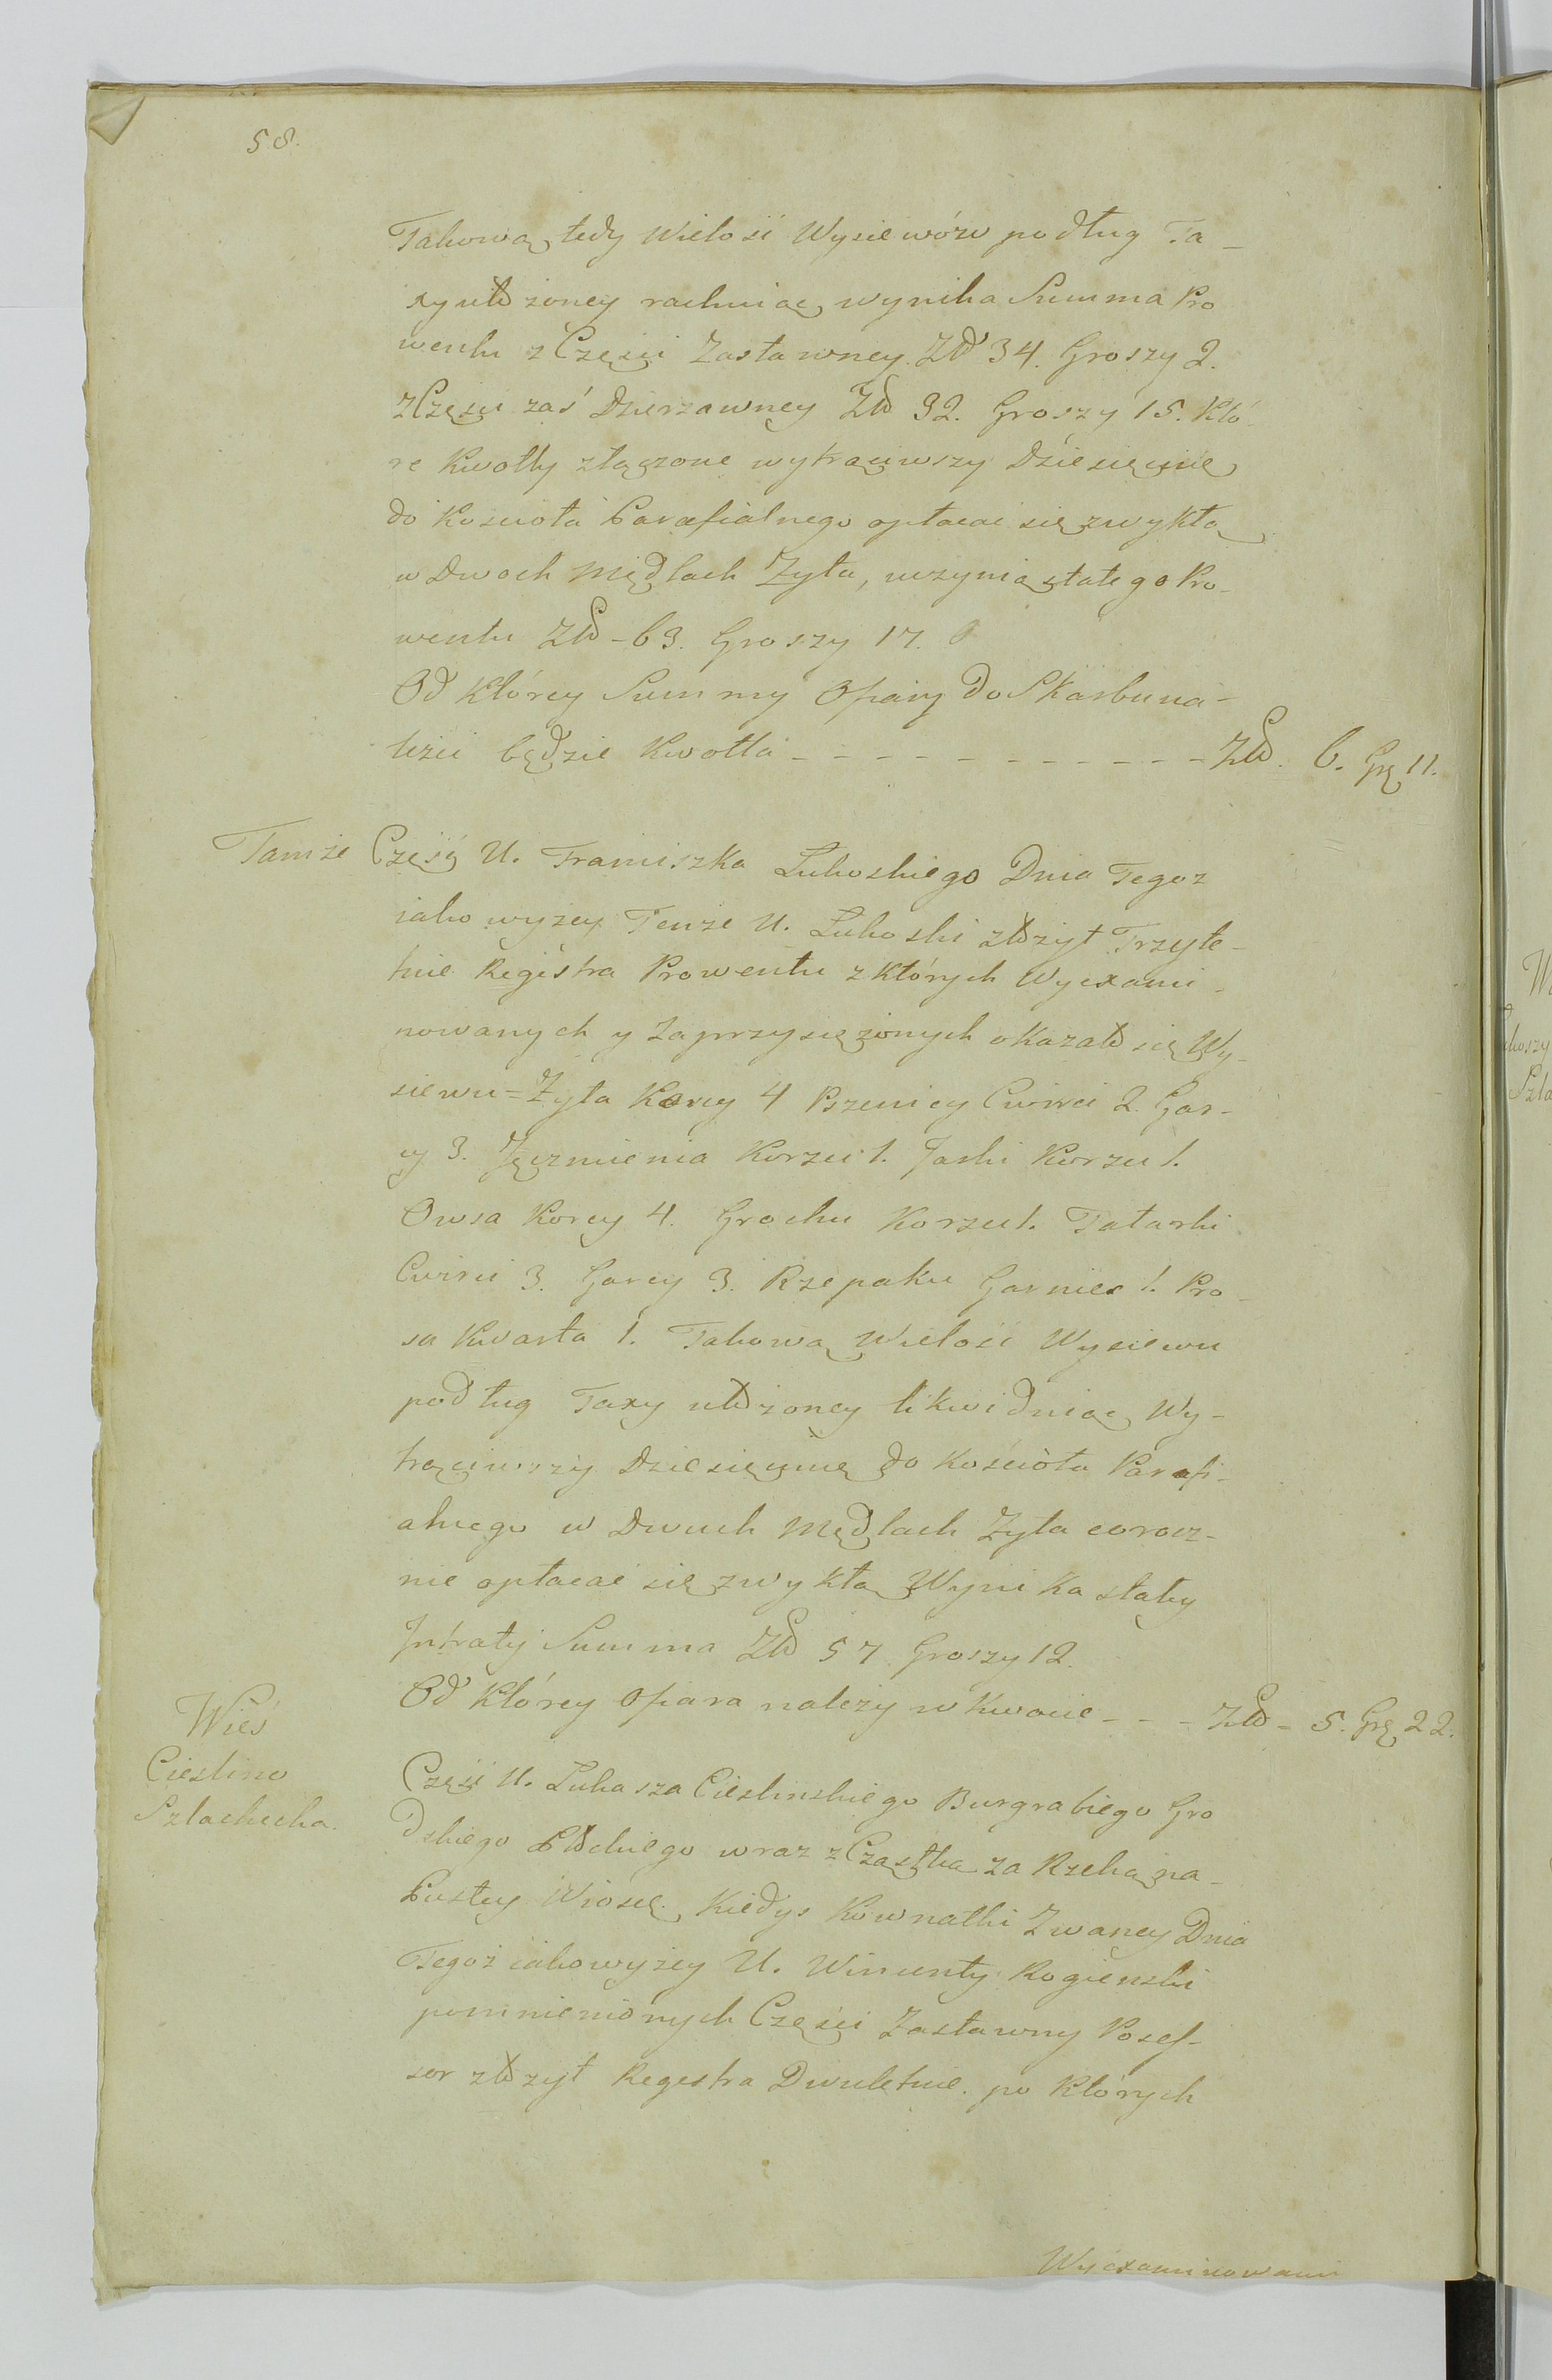 58.
Takową tedy Wielość Wysiewów podług Ta-
xy ułożoney rachuiąc, wynika Summa Pro
wentu z Części Zastawney. Zło 34. Groszy 2.
z Części zaś Dzierzawney Zło 32. Groszy 15. Któ-
re Kwotty złączone wytrąciwszy Dziesięcinę
do Koscioła Parafialnego opłacać się zwykłą
w Dwoch Mędlach Zyta, uczynią stałego Pro-
wentu Zło - 63. Groszy 17.
Od Którey Summy Ofiary do Skarbu na-
leżeć będzie Kwotta - - - - - - - - - - - Zło. 6. Grę 11.
Tamże
Część U. Franciszka Lukoskiego Dnia Tegoz
iako wyzey Tenże U. Lukoski złożył Trzyle-
tnie Regestra Prowentu z Których Wyexami-
nowanych y zaprzysiężonych okazało się Wy-
siewu = Zyta Korcy 4 Pszenicy Cwierci 2. Gar-
cy 3. Jęczmienia Korzec 1. Jarki Korzec 1.
Owsa Korcy 4. Grochu Korzec 1. Tatarki
Cwierci 3. Garcy 3. Rzepaku Garniec 1. Pro-
sa Kwarta 1. Takową Wielość Wysiewu
podług Taxy ułożoney likwiduiąc, Wy-
trąciwszy Dziesięcinę do Kościoła Parafi-
alnego w Dwuch Mędlach Zyta corocz-
nie opłacać się zwykłą Wynika stałey
Intraty Summa Zło 57. Groszy 12.
Od Którey Ofiara należy w Kwocie - - - Zło - 5. Grę 22.
Wieś
Cieslino
Szlachecka.
Część U. Lukasza Cieslinskiego Burgrabiego Gro
Dzkiego Płockiego wraz z Cząstką za Rzeką na-
Pustey Wiosce. Kiedys Kownatki Zwaney Dnia
Tegoż iako wyżey U. Wincenty Rogienski
pomnienionych Części Zastawny Posef-
sor złożył Regestra Dwuletnie. po Których
Wyexaminowani